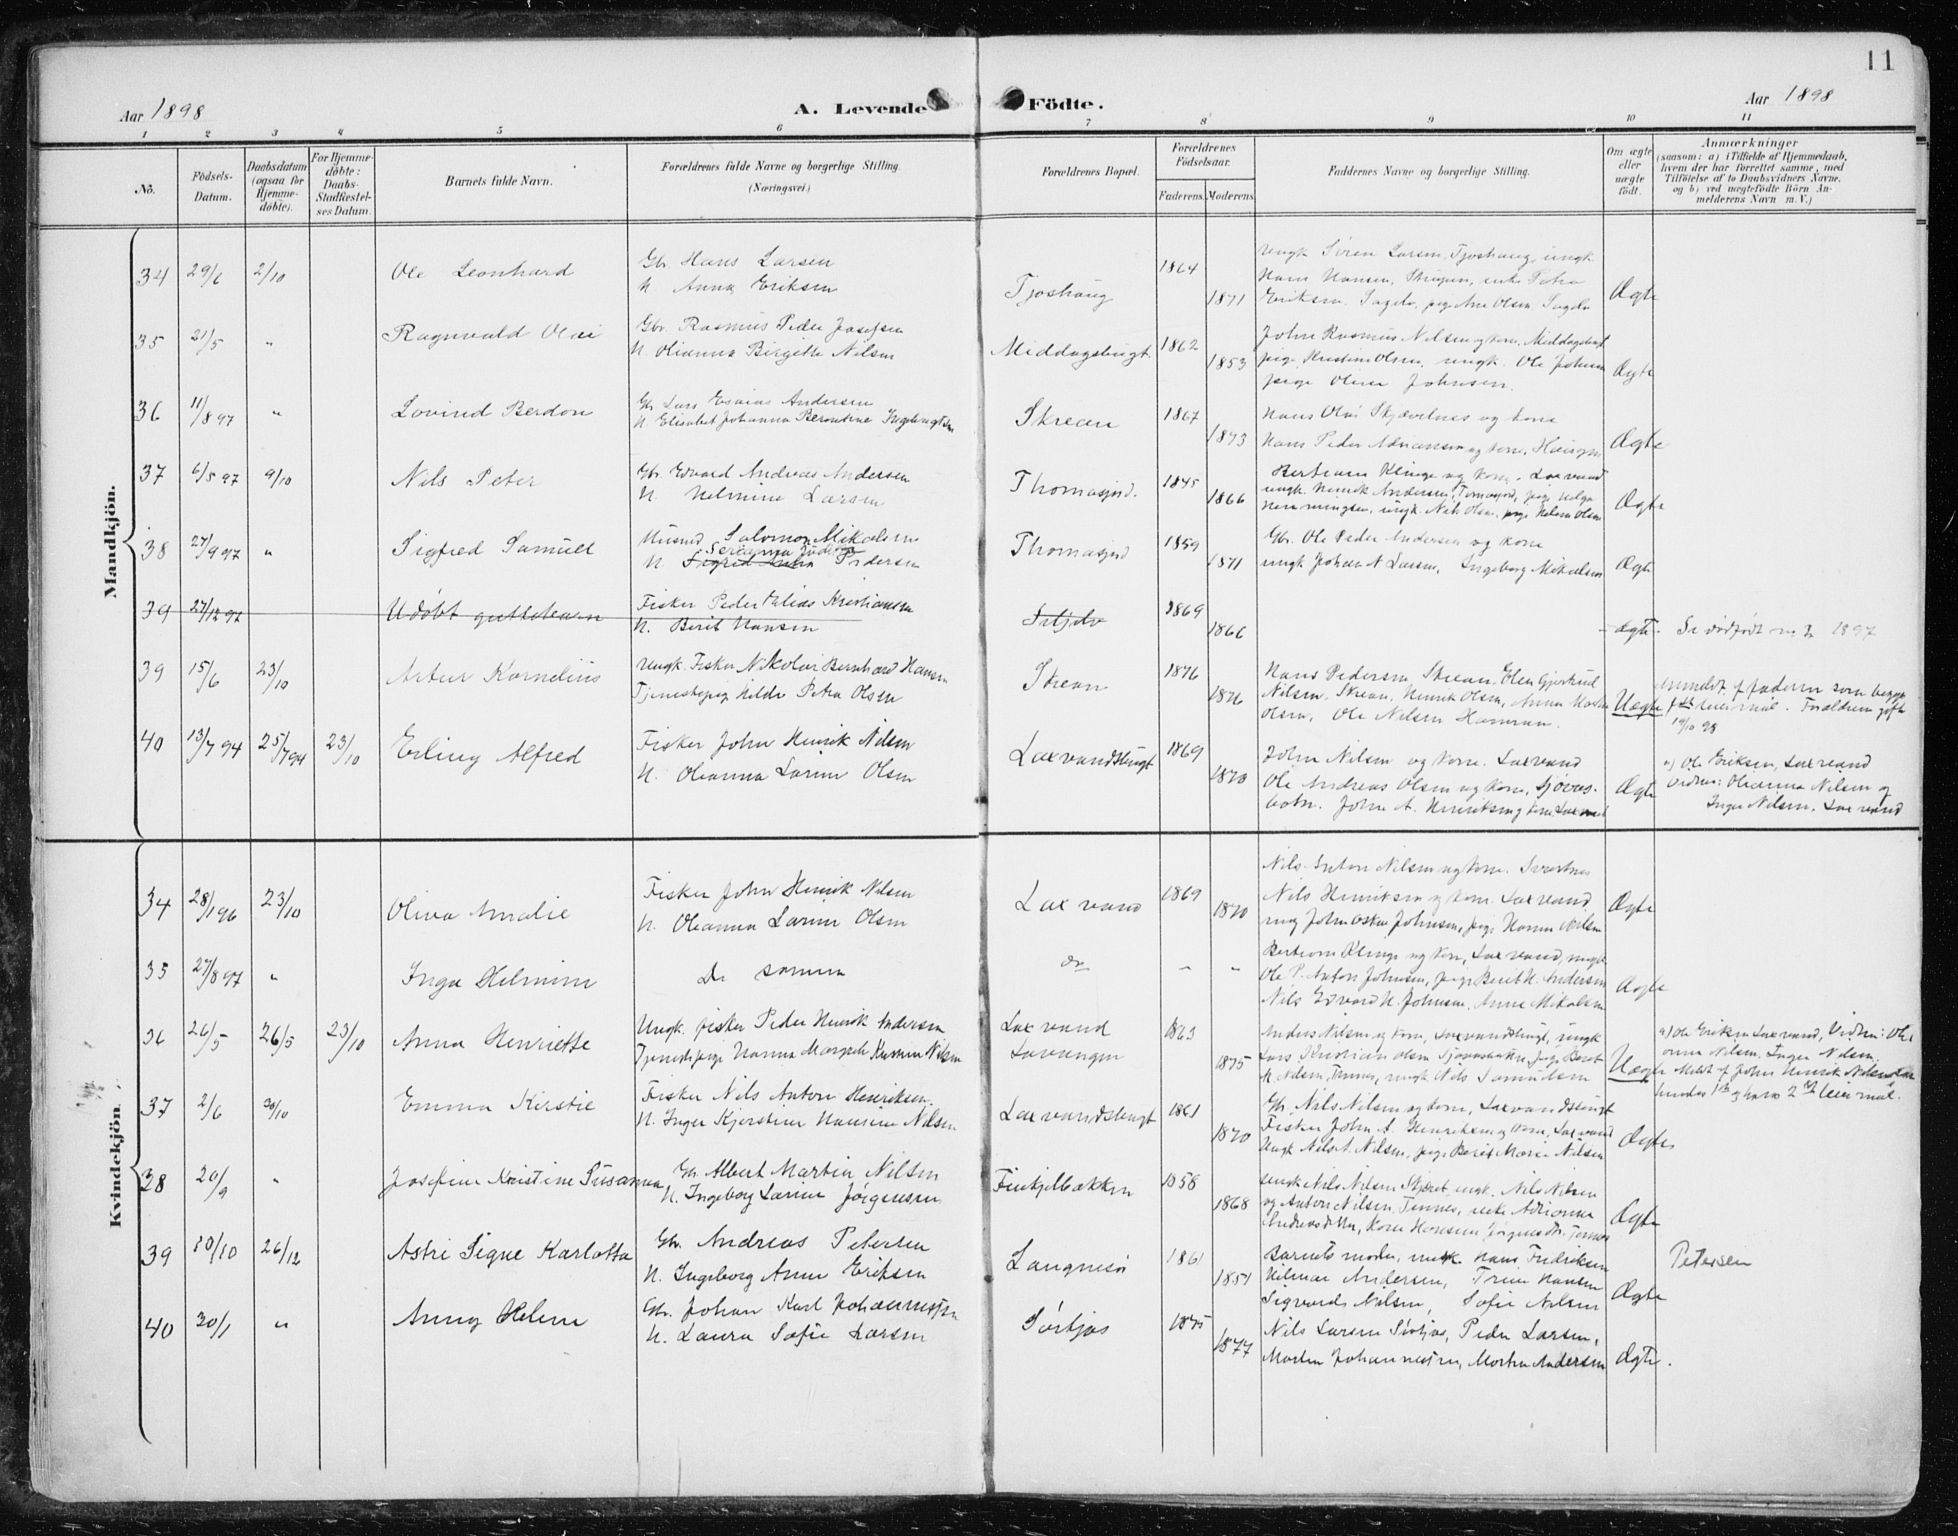 11
Aar 1898
A. Levende Födte.
Aar 1898
1 2 3 4 5 6 7 8 9 10 11
No.
Födsels-Datum.
Daabsdatum (ogsaa for Hjemme-döbte).
For Hjemme-döbte: Daabs-Stadfæstel-ses Datum.
Barnets fulde Navn.
Forældrenes fulde Navne og borgerlige Stilling.
(Næringsvei.)
Forældrenes Bopæl.
Forældrenes Födselsaar.
Faderens. Moderens.
Faddernes Navne og borgerlige Stilling.
Om ægte eller uægte födt.
Anmærkninger
(saasom: a) i Tilfælde af Hjemmedaab,
hvem der har forrettet samme, med
Tilföielse af to Daabsvidners Navne,
og b) ved uægtefödte Börn An-
melderens Navn m. V.)
Mandkjön.
34 29/6 2/10 Ole Leonhard
Gbr. Hans Larsen
H. Anna Eriksen
Tjoshaug 1864 1871
Ægte
35 21/5 " Ragnvald Olai
Gbr. Rasmus Peder Josefsen
H. Olianna Birgitte Nilsen
Middagsbugt. 1862 1853
John Rasmus Nilsen og kone, Middagsbugt
pige Kristine Olsen, ungk. Ole Johnsen
pige Oline Johnsen.
Ægte
36 11/8 97 " Lovind Berdon
Gbr Lars Esaias Andersen
H. Elisabet Johanna Berontine Ingebrigtsen
Skrean 1867 1873
Hans Olai og kone
Hans Peder Adriansen og kone,
Ægte
37 6/5 97 9/10 Nils Peter
Gbr. Edvard Andreas Andersen
H. Helmine Larsen
Thomasjord. 1845 1866
Bertheus Klinge og kone. Laxvand
ungk. Henrik Andersen, Tomasjord, pige Helga
Henningsen, ungk. Nils Olsen, pige Helene Olsen
Ægte
38 27/9 97 " Sigfred Samuel
Husmd Salomon Mikalsen
H. Pedersen
Thomasjord 1859 1871
Gbr. Ole Peder Andersen og kone
ungk Johan N Larsen, Ingeborg Mikalsen
Ægte
39 27/12 97 Udøbt guttebarn
Fisker Peder Elias Kristiansen
H. Berit Hansen
1869 1866
Ægte. Se dødfødt no 3 1897
39 15/6 23/10 Artur Kornelius
Ungk. Fisker Nikolai Bernhard Hansen
Tjenestepige Hilda Petra Olsen
Skrean 1876 1876
Hans Pedersen, Skrean, Elen Gjertrud
Nilsen, Skrean, Henrik Olsen, Anna
Olsen, Ole Nilsen Hamran.
Uægte
Anmeldt af faderen som begges
første leiermaal. Forældrene gifte
19/10 98
40 13/7 94 25/7 94 23/10 Erling Alfred
Fisker John Henrik Nilsen
H. Oleanna Larine Olsen
Laxvandsbugt 1869 1870
John Nilsen og kone. Laxvand
Ole Andreas Olsen og kone, Sjøvas-
botn. John A. Henriksen og kone Laxvand
Ægte
a) Ole Eriksen, Laxvand
Vidner: Oleanna Nilsen og
Inger Nilsen. Laxvand
Kvindekjön.
34 28/1 96 23/10 Oliva Amalie
Fisker John Henrik Nilsen
H. Oleanna Larine Olsen
Laxvand 1869 1870
Nils Anton Nilsen og kone.
Nils Henriksen og kone. Laxvand
ung John Oskar Johnsen, pige Hanna Nilsen
Ægte
35 27/8 97 " Inga Helmine
De samme
do - -
Bertheus Klinge og kone, Laxvand, ungk
Ole P. Anton Johnsen, pige Berit H. Andersen
Nils Edvard N. Johnsen, Anne Mikalsen
Ægte
36 26/5 26/5 23/10 Anna Henriette
Ungk. fisker Peder Henrik Andersen
Tjenestepige Hanna Margrete Kristine Nilsen
Laxvand
Lavangen 1863 1875
Anders Nilsen og kone, Laxvandsbugt, ungk
Lars Kristian Olsen pige Beret
M. Nilsen, Tennes, ungk Nils Samuelsen
Uægte
a) Ole Eriksen Laxvand, Vidner: Ole
anna Nilsen, Inger Nilsen.
Meldt af John Henrik Nilsen
hendes 1ste og hans 2det leiermaal.
37 2/6 30/10 Emma Kirstie
Fisker Nils Anton Henriksen.
H. Inger Kjerstine Hansine Nilsen
Laxvandsbugt 1861 1870
Gbr. Nils Nilsen og kone, Laxvandsbugt
Fisker John A. Henriksen og kone, Laxvand
Ungk Nils A. Nilsen, pige Berit Marie Nilsen
Ægte
38 20/9 " Josefine Kristine Susanna
Gbr. Albert Martin Nilsen
H. Ingeborg Larine Jørgensen
1858 1868
ungk Nils Nilsen ungk. Nils Nilsen
og Anton Nilsen, Tennes, enke Adrianna
Andreasdatter, Kone
Ægte
39 10/10 26/12 Astri Signe Karlotta
Gbr. Andreas Petersen
H. Ingeborg Anne Eriksen
Langnesör 1861 1851
Barnets moder, ungk. Hans Fredriksen
Hilmar Andersen, Trine Hansen
Sigvard Nilsen, Sofie Nilsen
Ægte Petersen
40 30/1 " Anny Helene
Gbr. Johan Karl Johannessen
H. Laura Sofie Larsen
Sörkjos 1875 1877
Nils Larsen Sörkjos, Peder Larsen,
Morten Johannessen, Morten Andersen
Ægte.